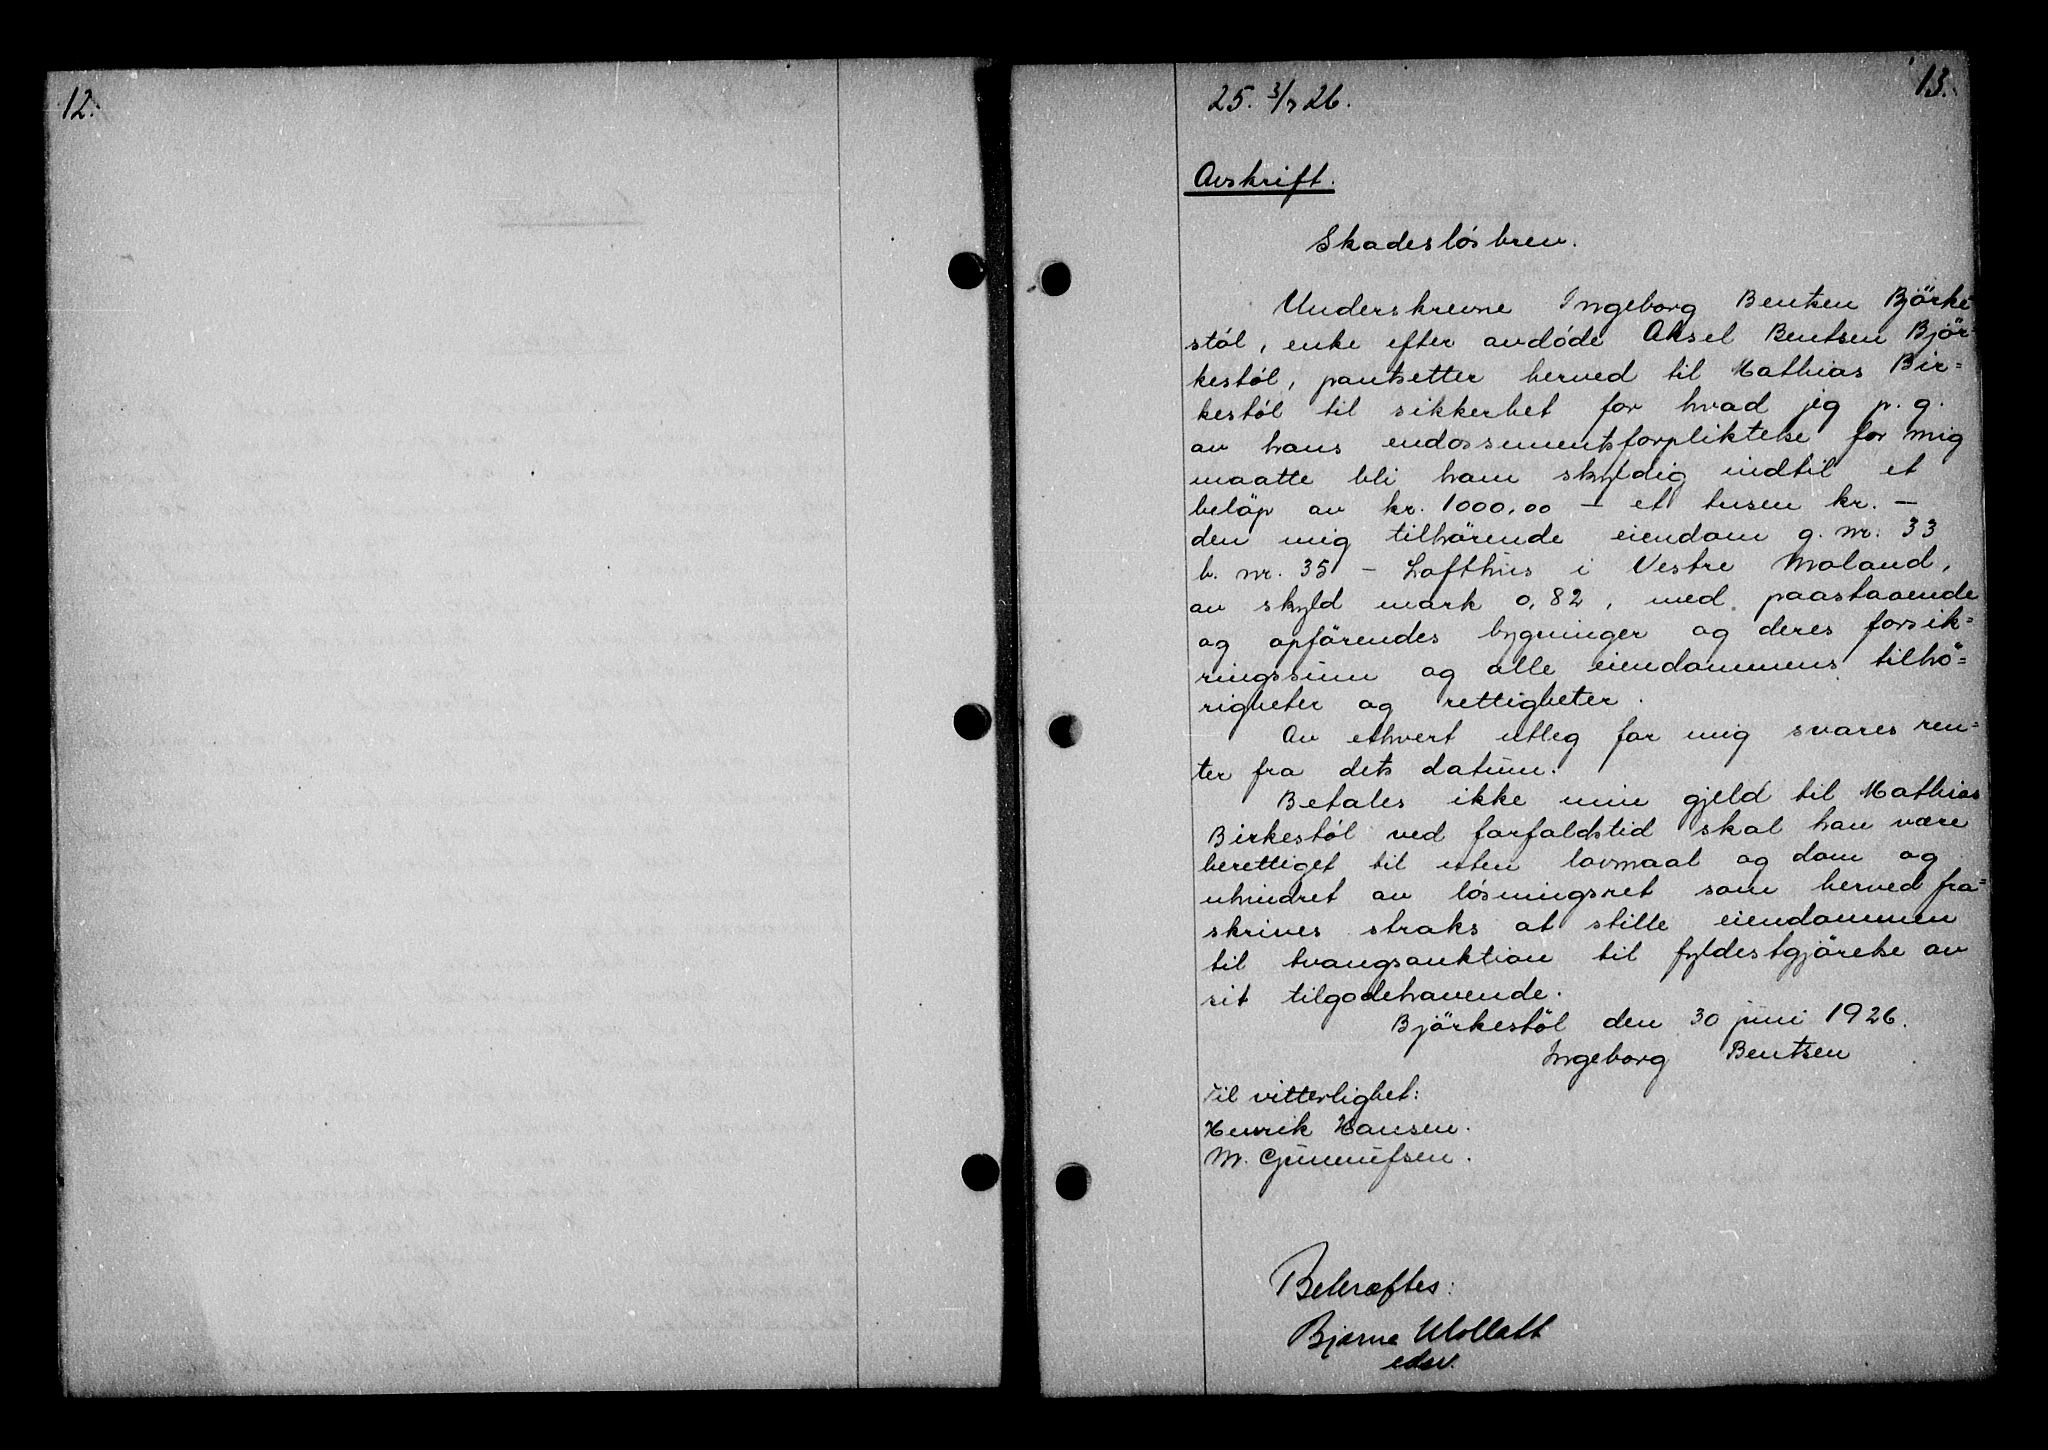 12.
13.
25. 3/7 26.
Avskrift.
Skadesløsbrev.
Underskrevne Ingeborg Bentsen Björke
støl, enke efter avdøde Aksel Bentsen Björ-
kestøl, pantsetter herved til Mathias Bir=
kestøl til sikkerhet for hvad jeg p. g.
av hans endossementsforpliktelse for mig
maatte bli ham skyldig indtil et
beløp av kr. 1000,00 – et tusen kr. –
den mig tilhörende eiendom g. nr. 33
b. nr. 35 – Lofthus i Vestre Moland,
av skyld mark 0,82, med paastaaende
og opförendes bygninger og deres forsik=
ringssum og alle eiendommens tilhö=
righeter og rettigheter.
Av ethvert utleg for mig svares ren=
ter fra dets datum.
Betales ikke min gjeld til Mathias
Birkestøl ved forfaldstid skal han være
berettiget til uten lovmaal og dom og
uhindret av løsningsret som herved fra=
skrives straks at stille eiendommen
til tvangsauktion til fyldestgjörelse av
sit tilgodehavende.
Björkestöl den 30 juni 1926.
Ingeborg Bentsen
Til vitterlighet:
Henrik Hansen.
M. Gunnufsen.
Bekræftes:
Bjarne Mollatt
edsv.